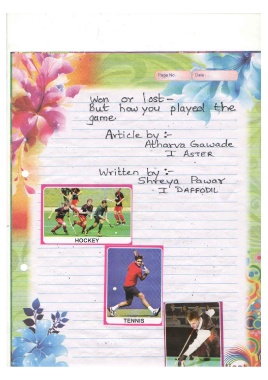 Page No.
Date
Won or lost -
But how you played the
game
Article by :-
Atharva Gawade
I ASTER
Written by :-
Shreya Pawar
I DAFFODIL
HOCKEY
TENNIS